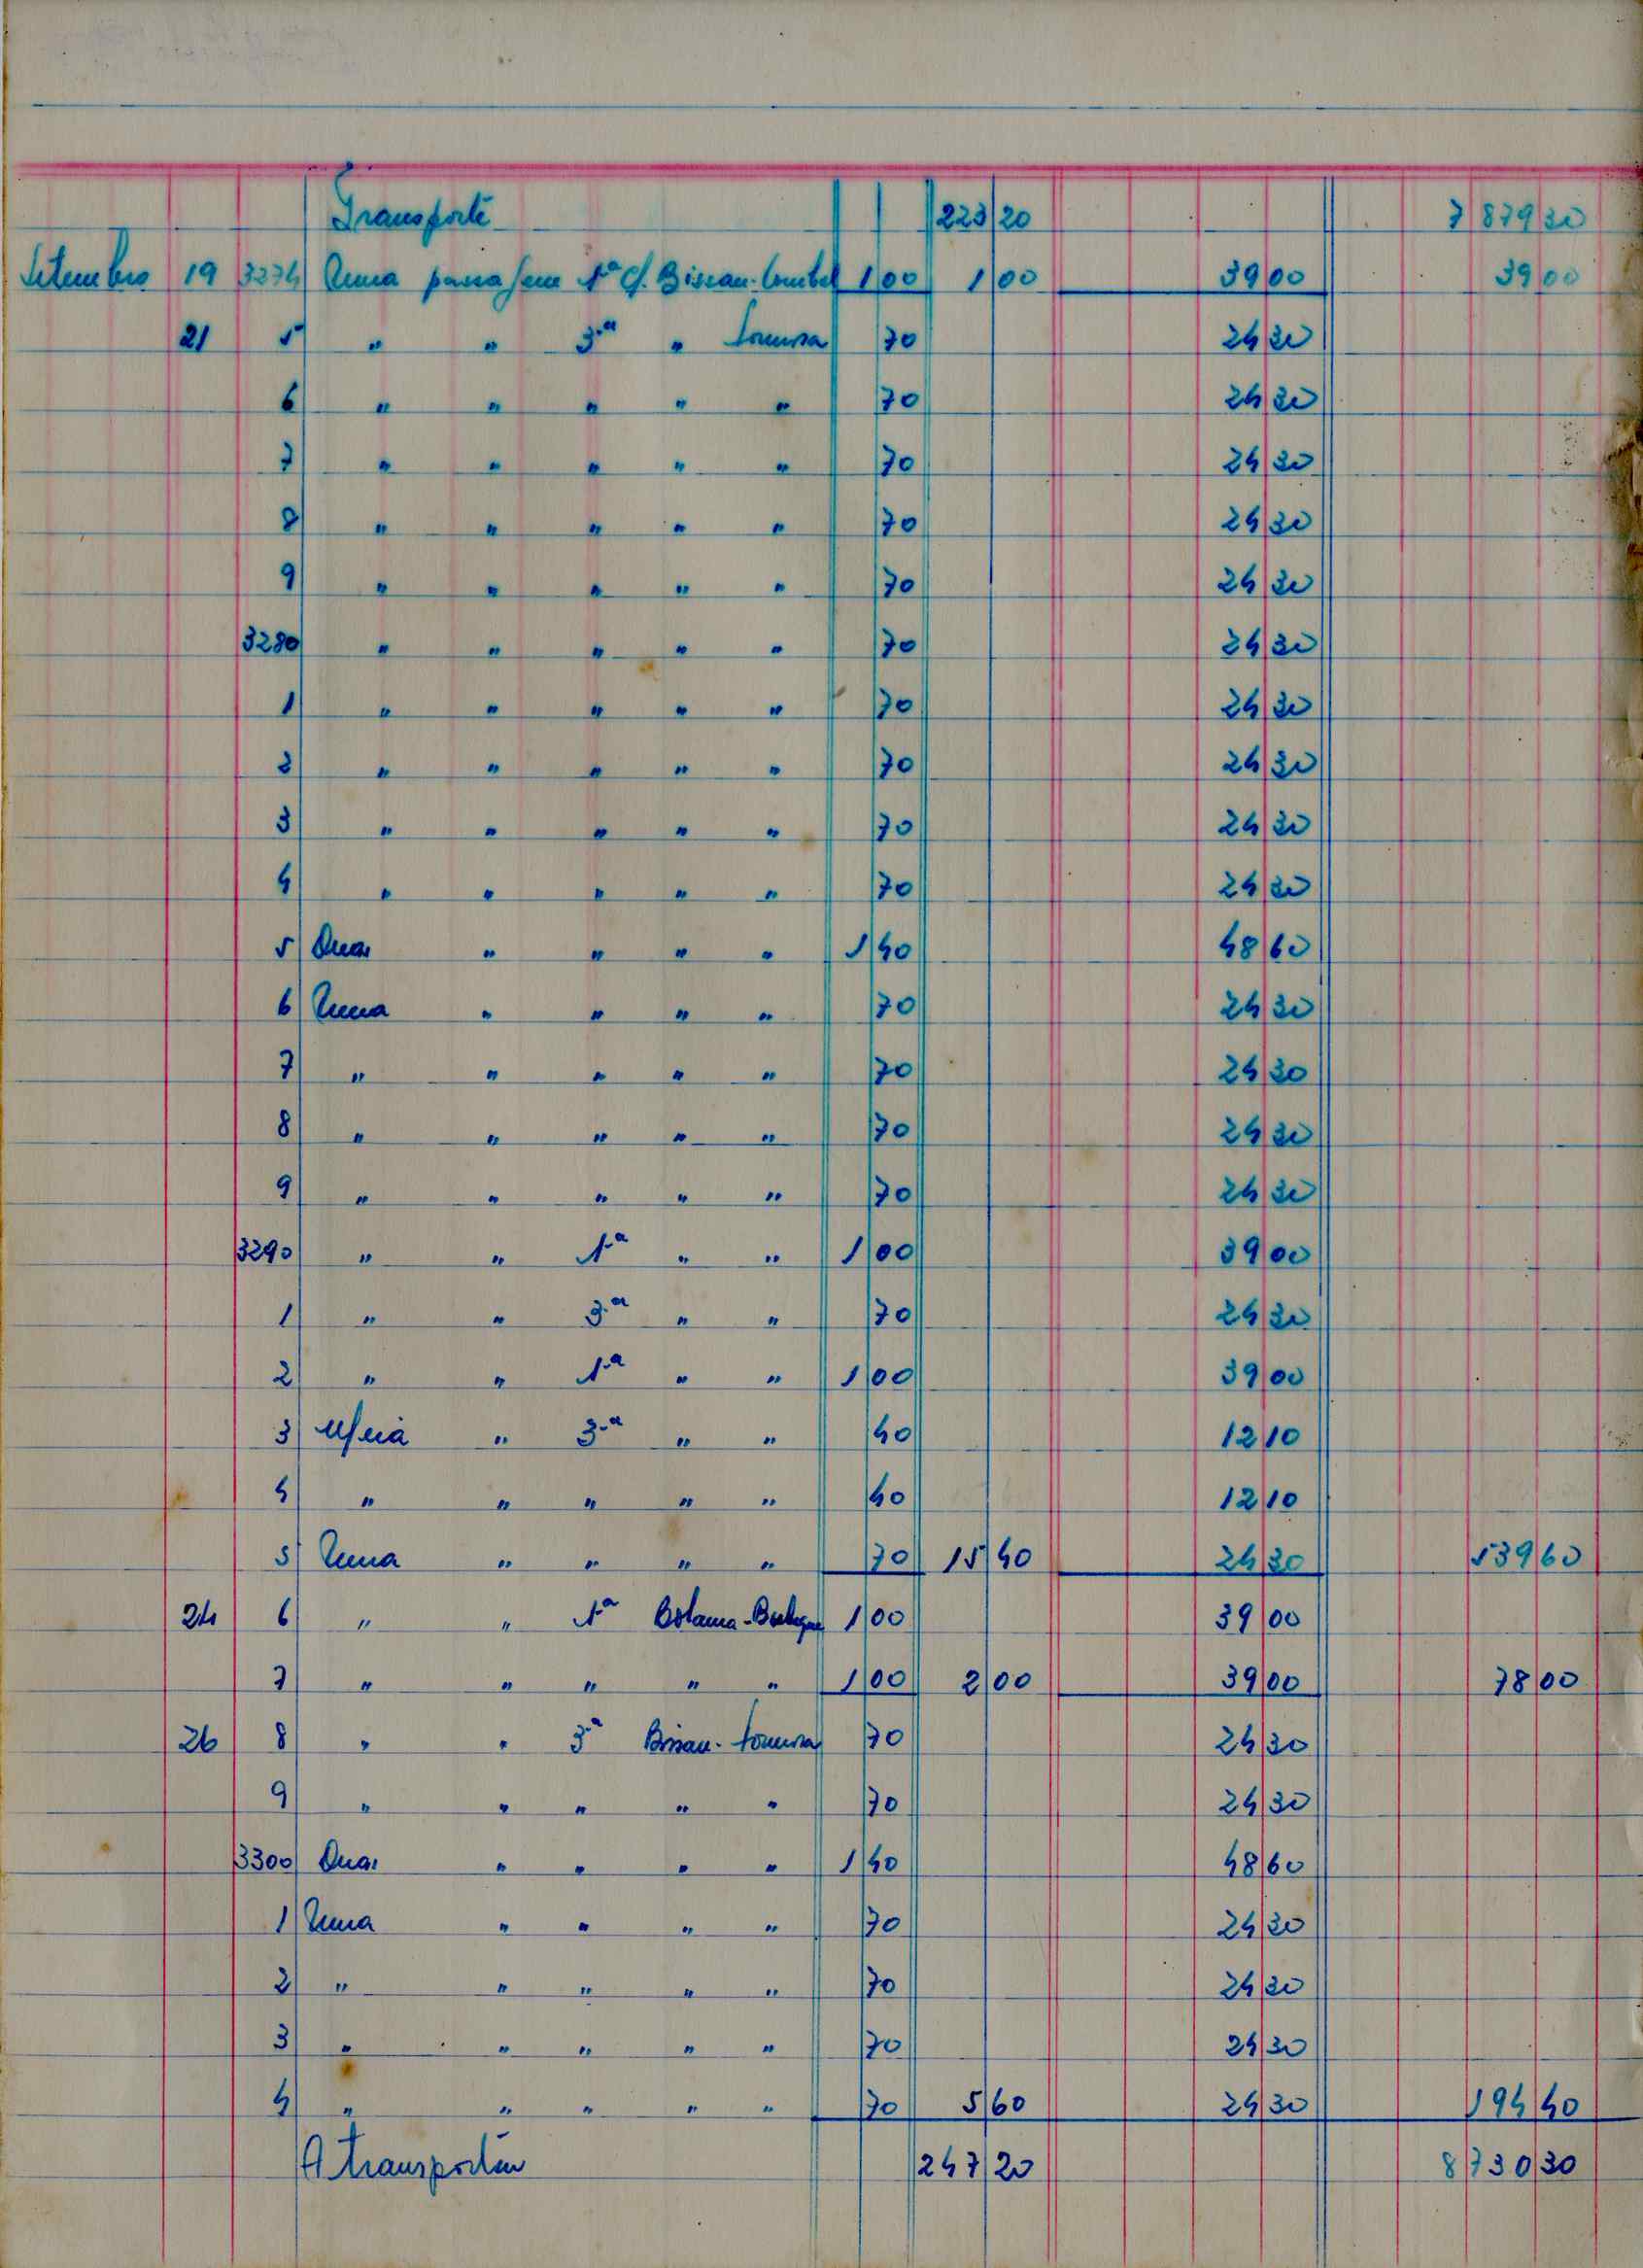 Transporte 223 20 7 879 30
Setembro 19 3274 Uma passagem 1ª cl. Bissau- 1 00 1 00 39 00 39 00
21 5 " " 3ª " 70 24 30
6 " " " " " 70 24 30
7 " " " " " 70 24 30
8 " " " " " 70 24 30
9 " " " " " 70 24 30
3280 " " " " " 70 24 30
1 " " " " " 70 24 30
2 " " " " " 70 24 30
3 " " " " " 70 24 30
4 " " " " " 70 24 30
5 Duas " " " " 1 40 48 60
6 Uma " " " " 70 24 30
7 " " " " " 70 24 30
8 " " " " " 70 24 30
9 " " " " " 70 24 30
3290 " " 1ª " " 1 00 39 00
1 " " 3ª " " 70 24 30
2 " " 1ª " " 1 00 39 00
3 Meia " 3ª " " 40 12 10
4 " " " " " 40 12 10
5 Uma " " " " 70 15 40 24 30 539 60
24 6 " " 1ª Bolama-Bubaque 1 00 39 00
7 " " " " " 1 00 2 00 39 00 78 00
26 8 " " 3ª Bissau- 70 24 30
9 " " " " " 70 24 30
3300 Duas " " " " 1 40 48 60
1 Uma " " " " 70 24 30
2 " " " " " 70 24 30
3 " " " " " 70 24 30
4 " " " " " 70 5 60 24 30 194 40
A transportar 247 20 8 730 30